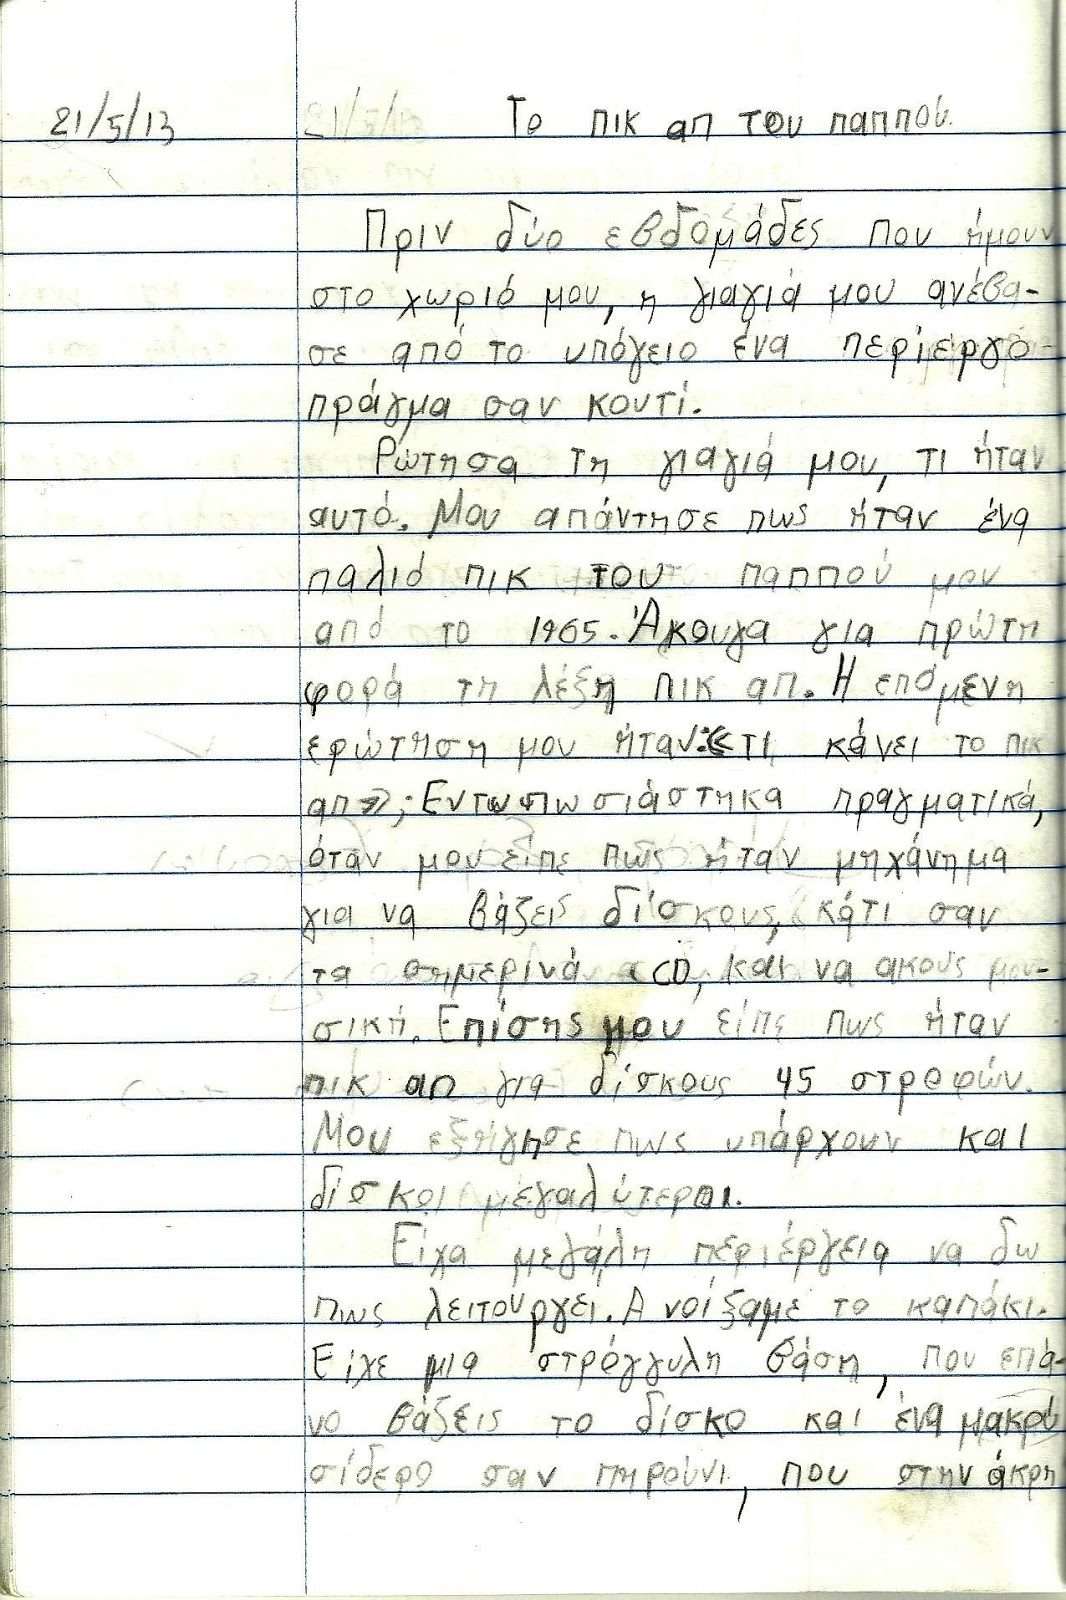 21/5/13 Το πικ απ του παππού.
Πριν δύο εβδομάδες που ήμουν
στο χωριό μου, η γιαγιά μου ανέβα-
σε από το υπόγειο ένα περίεργο
πράγμα σαν κουτί.
Ρώτησα τη γιαγιά μου, τι ήταν
αυτό. Μου απάντησε πως ήταν ένα
παλιό πικ του παππού μου
από το 1965. Άκουγα για πρώτη
φορά τη λέξη πικ απ. Η επόμενη
ερώτηση μου ήταν: «τι κάνει το πικ
απ»; Εντυπωσιάστηκα πραγματικά,
όταν μου είπε πως ήταν μηχάνημα
για να βάζεις δίσκους, κάτι σαν
τα σημερινά CD, και να ακούς μου-
σική. Επίσης μου είπε πως ήταν
πικ απ για δίσκους 45 στροφών.
Μου εξήγησε πως υπάρχουν και
δίσκοι μεγαλύτεροι.
Είχα μεγάλη περιέργεια να δω
πως λειτουργεί. Ανοίξαμε το καπάκι.
Είχε μια στρόγγυλη βάση, που επά-
νο βάζεις το δίσκο και ένα μακρύ
σίδερο σαν πηρούνι, που στην άκρη